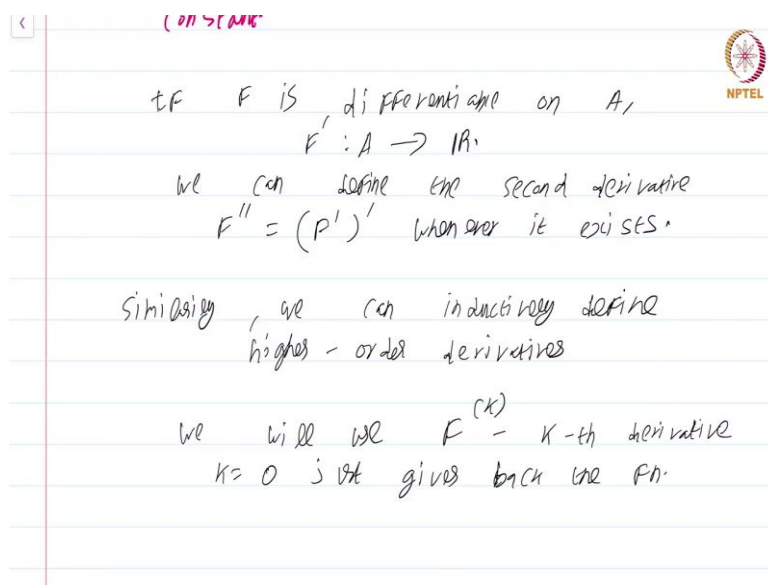 constant
NPTEL
If F is differentiable on A,
F' : A → ℝ.
We can define the second derivative
F'' = (F')' whenever it exists.
Similarly, we can inductively define
higher-order derivatives
We will use F^(k) - k-th derivative
k = 0 just gives back the Fn.